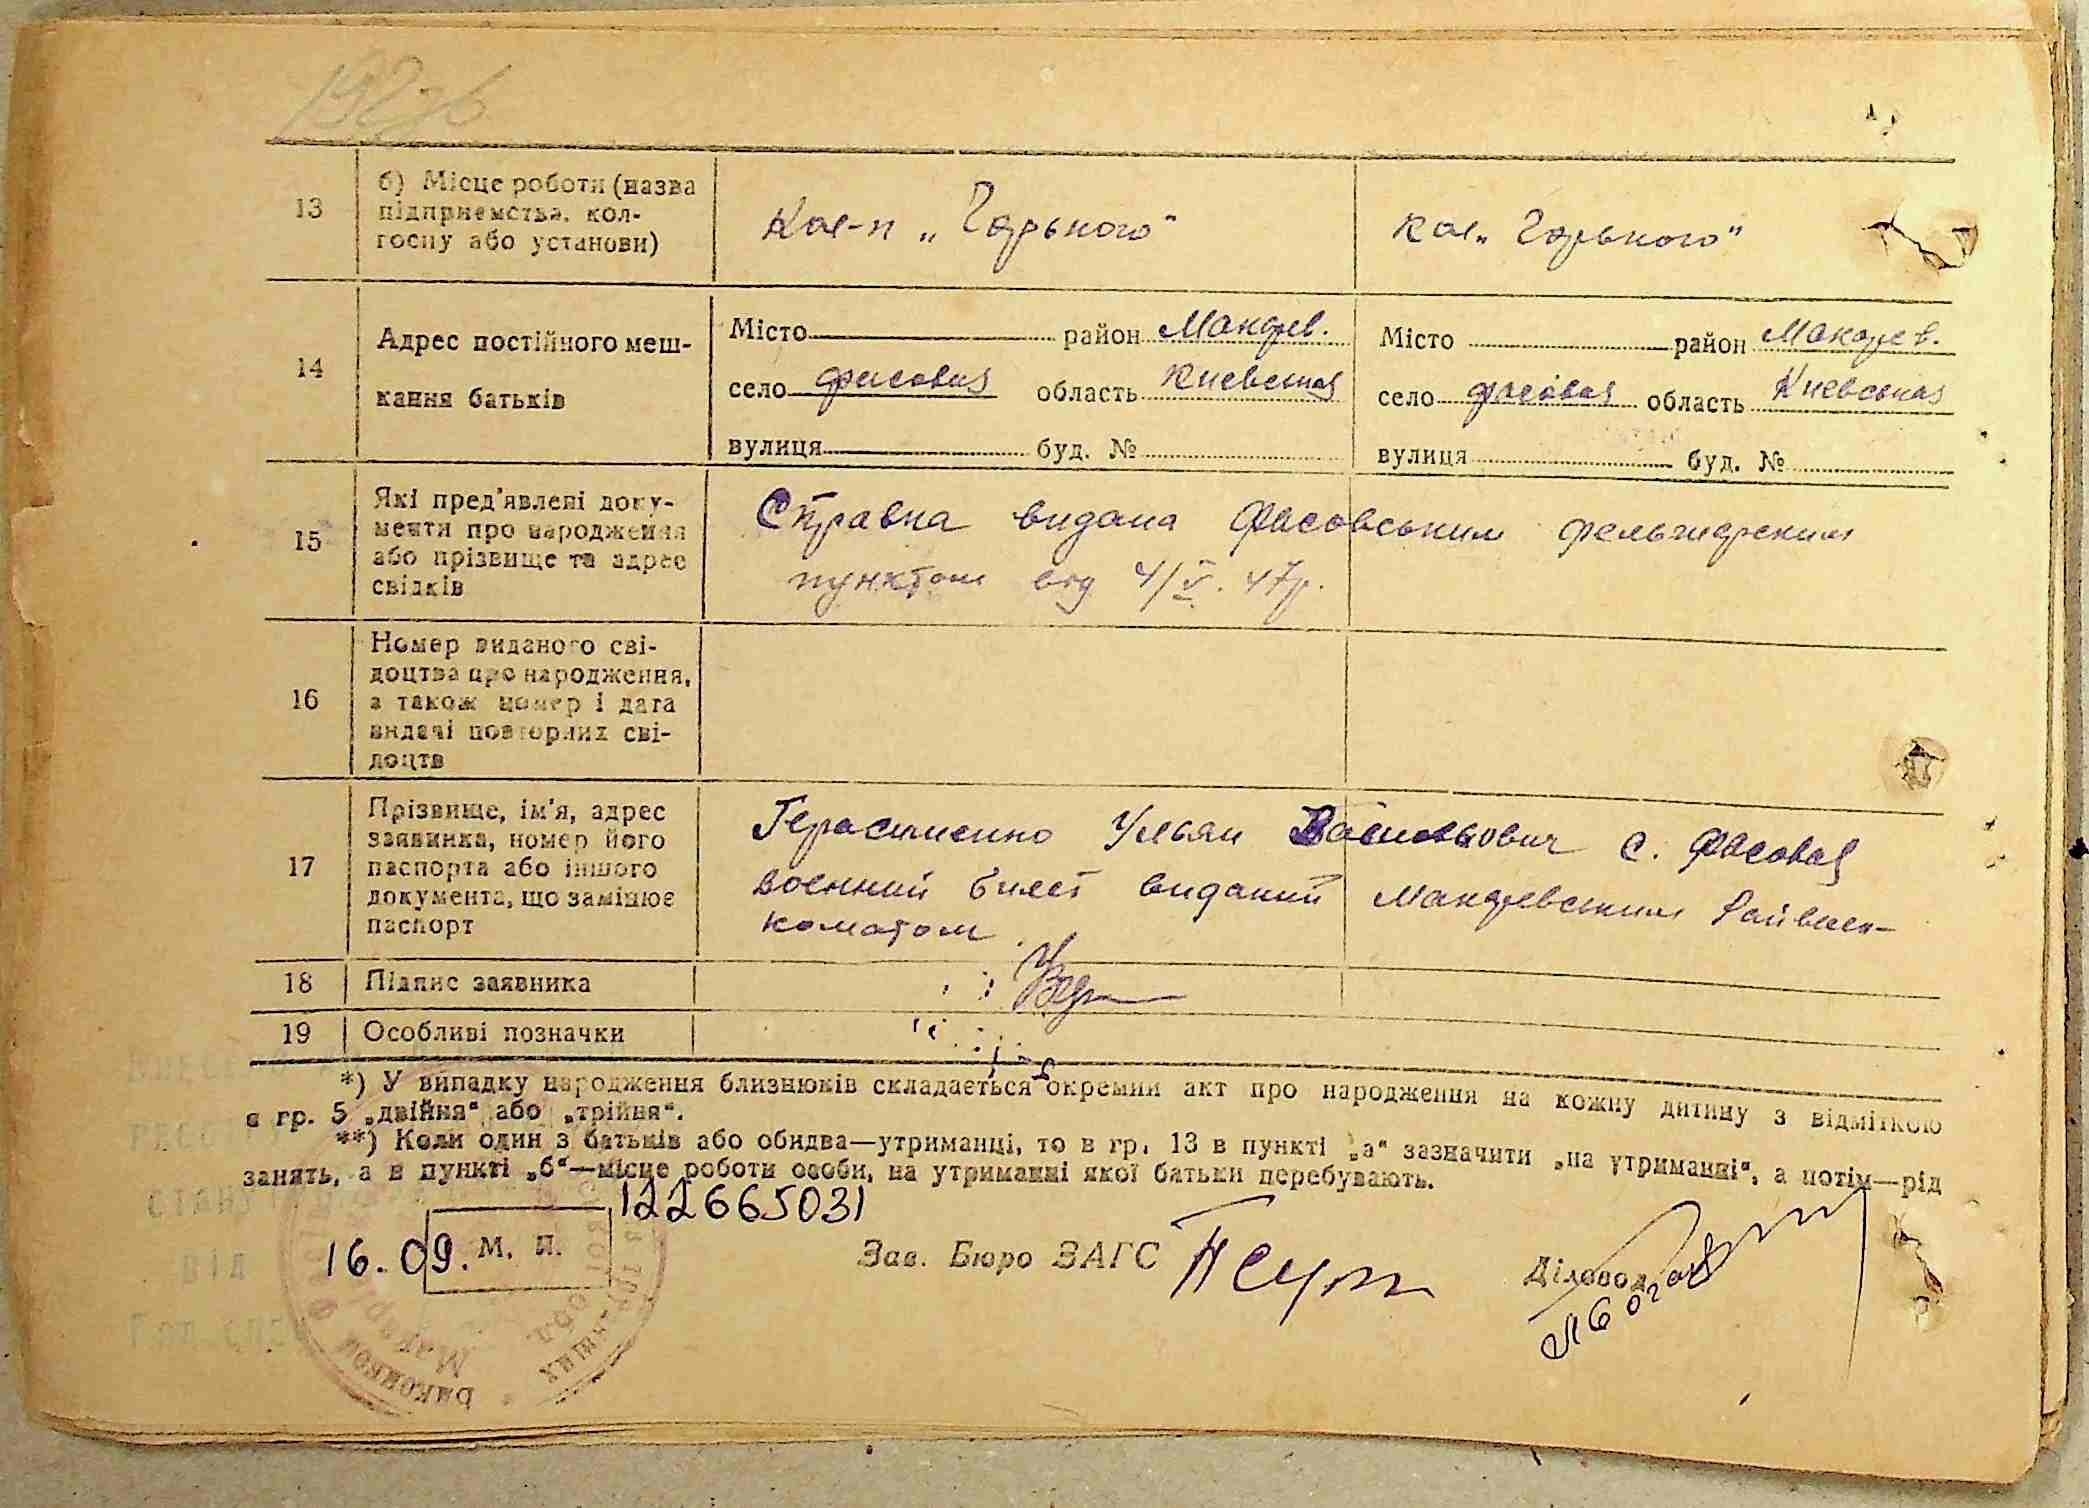 13
б) Місце роботи (назва
підприємства, кол-
госпу або установи)
Кол-п „Горького"
Кол. „Горького"
14
Адрес постійного меш-
кання батьків
Місто район Макарев.
село Фасовая область Киевская
вулиця буд. №
Місто район Макарев.
село Фасовая область Киевская
вулиця буд. №
15
Які пред'явлені доку-
менти про народження
або прізвище та адрес
свідків
Справка видана Фасовським фельшерским
пунктом від 4/V. 47р.
16
Номер виданого сві-
доцтва про народження,
а також номер і дата
видачі повторних сві-
доцтв
17
Прізвище, ім'я, адрес
заявника, номер його
паспорта або іншого
документа, що замінює
паспорт
Герасименко Ульян с. Фасовая
военний билет виданий Макаревским Райвоен-
коматом
18
Підпис заявника
19
Особливі позначки
*) У випадку народження близнюків складається окремий акт про народження на кожну дитину з відміткою
в гр. 5 „двійня" або „трійня".
**) Коли один з батьків або обидва—утриманці, то в гр. 13 в пункті „а" зазначити „на утриманні", а потім—рід
занять, а в пункті „б"—місце роботи особи, на утриманні якої батьки перебувають.
122665031
16.09. М. П.
Зав. Бюро ЗАГС
Діловод